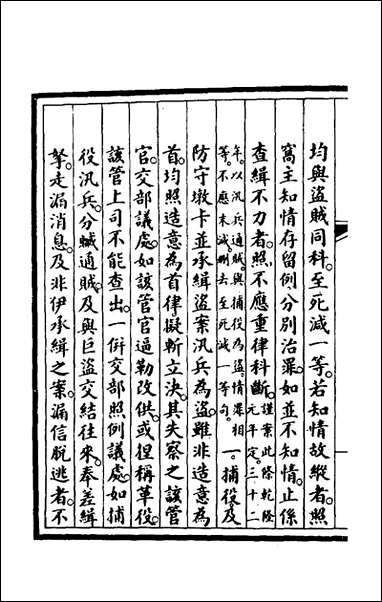 均與盜賊同科。至死減一等。若知情故縱者。照
窩主知情存留例分別治罪。如並不知情。止係
查緝不力者。照不應重律科斷。謹案此條乾隆元年定。三十二
年。以汛兵通賊。與捕役為盜。情罪相等。不應末減。刪去至死減一等句。一。捕役及
防守墩卡並承緝盜案汛兵為盜。雖非造意為
首。均照造意為首律擬斬立決。其失察之該管
官。交部議處。如該管官逼勒改供。或捏稱革役。
該管上司不能查出。一併交部照例議處。如捕
役汛兵。分贓通賊。及與巨盜交結往來。奉差緝
拏。走漏消息。及非伊承緝之案。漏信脫逃者。不